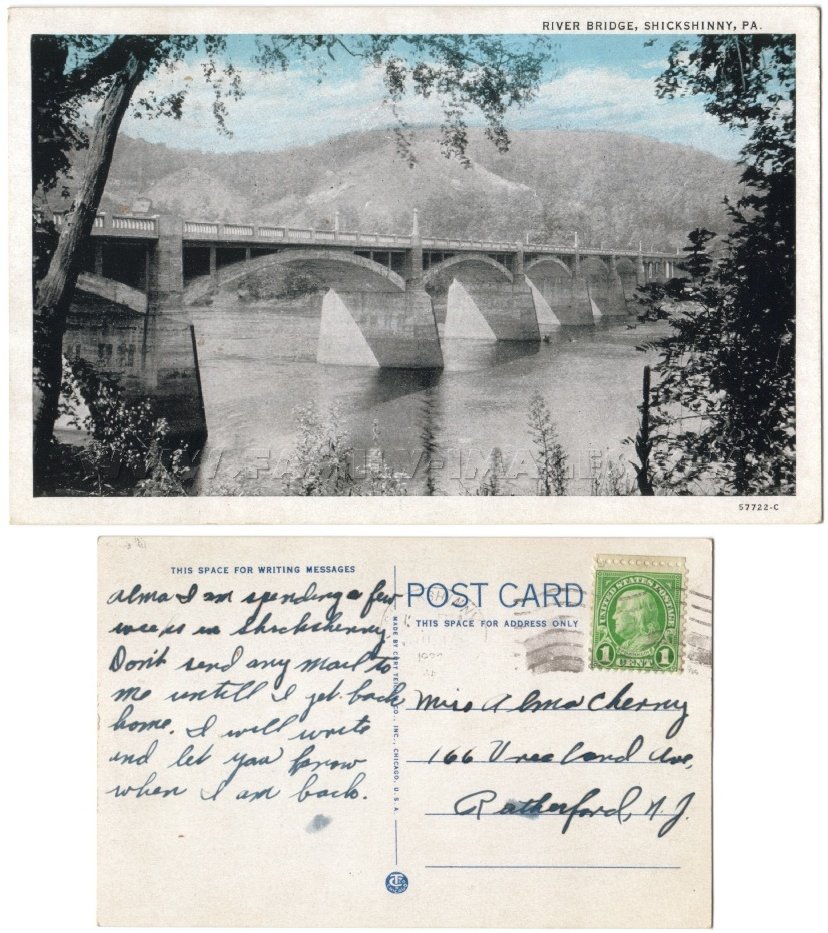 RIVER BRIDGE, SHICKSHINNY, PA.
WWW.FAMILY-IMAGES.COM
57722-C
THIS SPACE FOR WRITING MESSAGES
Alma I am spending a few
weeks in Shickshenny
Don't send any mail to
me untill I get back
home. I will write
and let you know
when I am back.
MADE BY CURT TEICH & CO., INC., CHICAGO, U.S.A.
POST CARD
THIS SPACE FOR ADDRESS ONLY
UNITED STATES POSTAGE
FRANKLIN
1 CENT 1
Miss Alma Cherny
166 Vreeland Ave,
Rutherford, N.J.